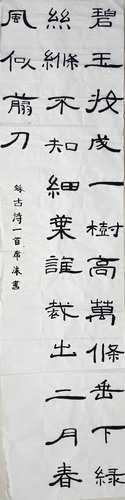 碧玉妝成一樹高萬條垂下綠
絲縧不知細葉誰裁出二月春
風似翦刀
錄古詩一首席